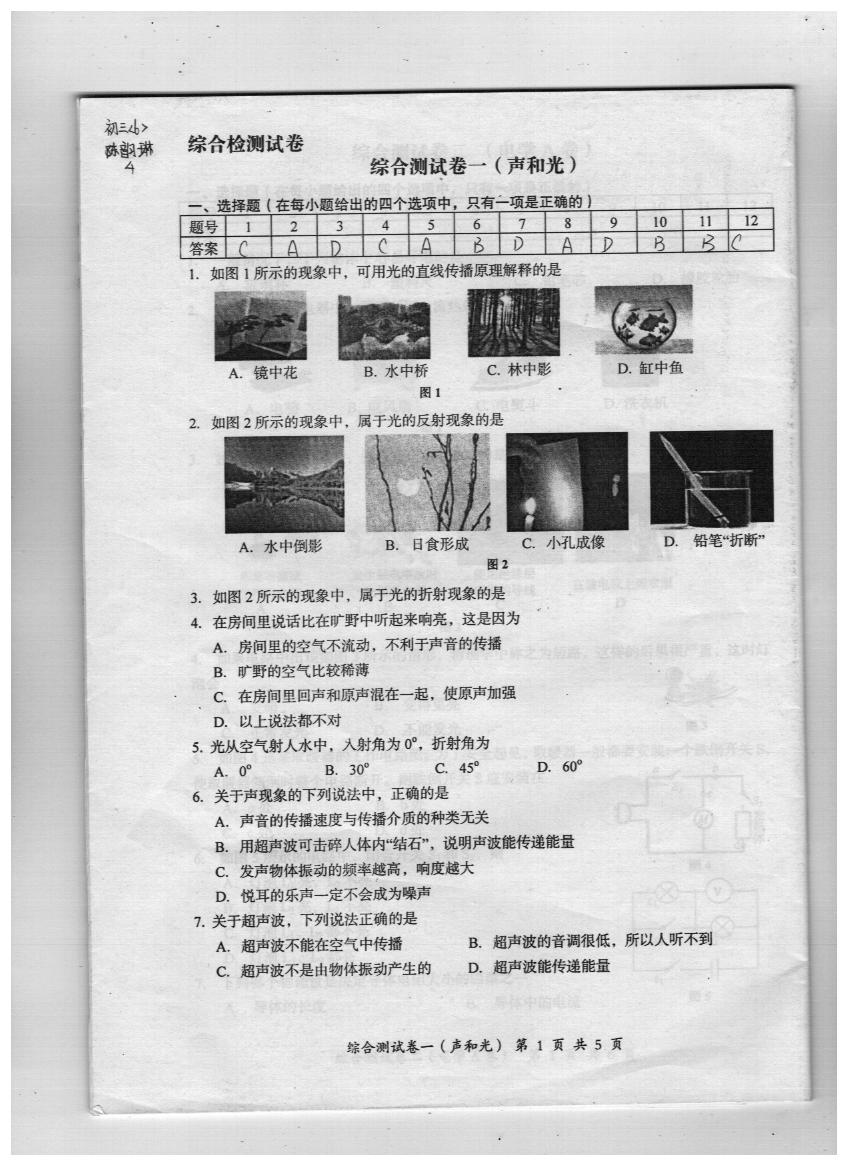 初三(6)
4
综合检测试卷
综合测试卷一(声和光)
一、选择题(在每小题给出的四个选项中,只有一项是正确的)
题号 1 2 3 4 5 6 7 8 9 10 11 12
答案 C A D C A B D A D B B C
1. 如图1所示的现象中,可用光的直线传播原理解释的是
A. 镜中花 B. 水中桥 C. 林中影 D. 缸中鱼
图1
2. 如图2所示的现象中,属于光的反射现象的是
A. 水中倒影 B. 日食形成 C. 小孔成像 D. 铅笔“折断”
图2
3. 如图2所示的现象中,属于光的折射现象的是
4. 在房间里说话比在旷野中听起来响亮,这是因为
A. 房间里的空气不流动,不利于声音的传播
B. 旷野的空气比较稀薄
C. 在房间里回声和原声混在一起,使原声加强
D. 以上说法都不对
5. 光从空气射人水中,入射角为0°,折射角为
A. 0° B. 30° C. 45° D. 60°
6. 关于声现象的下列说法中,正确的是
A. 声音的传播速度与传播介质的种类无关
B. 用超声波可击碎人体内“结石”,说明声波能传递能量
C. 发声物体振动的频率越高,响度越大
D. 悦耳的乐声一定不会成为噪声
7. 关于超声波,下列说法正确的是
A. 超声波不能在空气中传播 B. 超声波的音调很低,所以人听不到
C. 超声波不是由物体振动产生的 D. 超声波能传递能量
综合测试卷一(声和光) 第 1 页 共 5 页